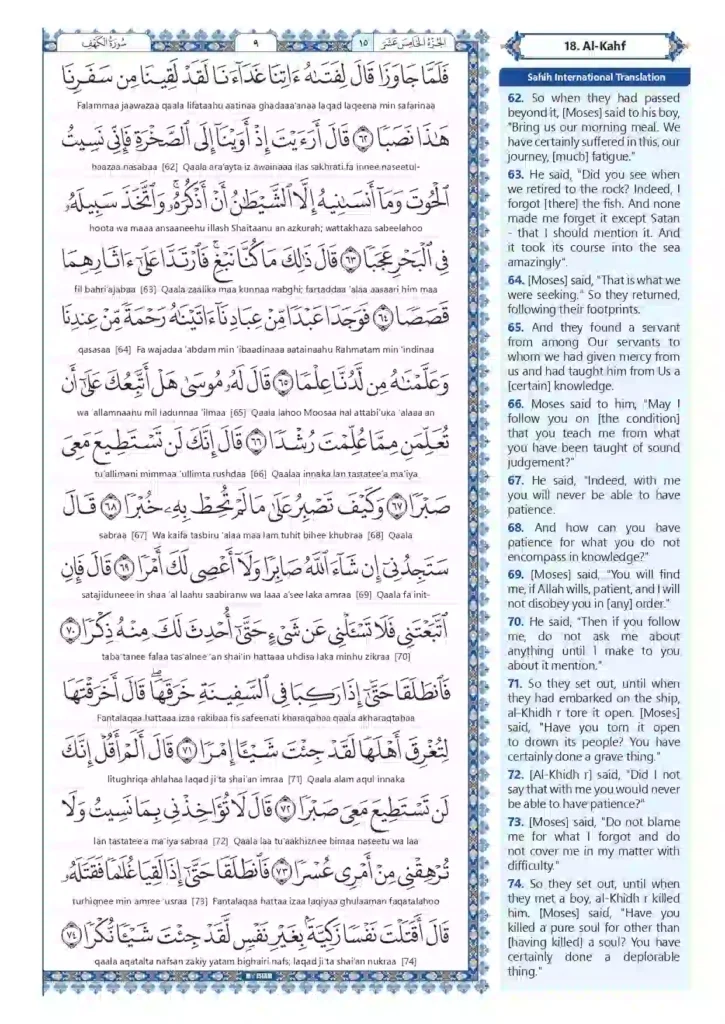 سُورَةُ الكَهْفِ ٩ ١٥ الجُزءُ الخَامِسَ عَشَرَ
فَلَمَّا جَاوَزَا قَالَ لِفَتَىٰهُ ءَاتِنَا غَدَآءَنَا لَقَدْ لَقِينَا مِن سَفَرِنَا
Falammaa jaawazaa qaala lifataahu aatinaa ghadaaa'anaa laqad laqeena min safarinaa
هَٰذَا نَصَبًا ﴿٦٢﴾ قَالَ أَرَءَيْتَ إِذْ أَوَيْنَآ إِلَى ٱلصَّخْرَةِ فَإِنِّى نَسِيتُ
haazaa nasabaa [62] Qaala ara'ayta iz awainaaa ilas sakhrati fa innee naseetul-
ٱلْحُوتَ وَمَآ أَنسَىٰنِيهُ إِلَّا ٱلشَّيْطَٰنُ أَنْ أَذْكُرَهُۥ ۚ وَٱتَّخَذَ سَبِيلَهُۥ
hoota wa maaa ansaaneehu illash Shaitaanu an azkurah; wattakhaza sabeelahoo
فِى ٱلْبَحْرِ عَجَبًا ﴿٦٣﴾ قَالَ ذَٰلِكَ مَا كُنَّا نَبْغِ ۚ فَٱرْتَدَّا عَلَىٰٓ ءَاثَارِهِمَا
fil bahri'ajabaa [63] Qaala zaalika maa kunnaa nabghi; fartaddaa 'alaa aasaari him maa
قَصَصًا ﴿٦٤﴾ فَوَجَدَا عَبْدًا مِّنْ عِبَادِنَآ ءَاتَيْنَٰهُ رَحْمَةً مِّنْ عِندِنَا
qasasaa [64] Fa wajadaa 'abdam min 'ibaadinaaa aatainaahu Rahmatam min 'indinaa
وَعَلَّمْنَٰهُ مِن لَّدُنَّا عِلْمًا ﴿٦٥﴾ قَالَ لَهُۥ مُوسَىٰ هَلْ أَتَّبِعُكَ عَلَىٰٓ أَن
wa 'allamnaahu mil ladunnaa 'ilmaa [65] Qaala lahoo Moosaa hal attabi'uka 'alaaa an
تُعَلِّمَنِ مِمَّا عُلِّمْتَ رُشْدًا ﴿٦٦﴾ قَالَ إِنَّكَ لَن تَسْتَطِيعَ مَعِىَ
tu'allimani mimmaa 'ullimta rushdaa [66] Qaalaa innaka lan tastatee'a ma'iya
صَبْرًا ﴿٦٧﴾ وَكَيْفَ تَصْبِرُ عَلَىٰ مَا لَمْ تُحِطْ بِهِۦ خُبْرًا ﴿٦٨﴾ قَالَ
sabraa [67] Wa kaifa tasbiru 'alaa maa lam tuhit bihee khubraa [68] Qaala
سَتَجِدُنِىٓ إِن شَآءَ ٱللَّهُ صَابِرًا وَلَآ أَعْصِى لَكَ أَمْرًا ﴿٦٩﴾ قَالَ فَإِنِ
satajiduneee in shaa 'al laahu saabiranw wa laaa a'see laka amraa [69] Qaala fa init-
ٱتَّبَعْتَنِى فَلَا تَسْـَٔلْنِى عَن شَىْءٍ حَتَّىٰٓ أُحْدِثَ لَكَ مِنْهُ ذِكْرًا ﴿٧٠﴾
taba'tanee falaa tas'alnee 'an shai'in hattaaa uhdisa laka minhu zikraa [70]
فَٱنطَلَقَا حَتَّىٰٓ إِذَا رَكِبَا فِى ٱلسَّفِينَةِ خَرَقَهَا ۖ قَالَ أَخَرَقْتَهَا
Fantalaqaa hattaaa izaa rakibaa fis safeenati kharaqahaa qaala akharaqtahaa
لِتُغْرِقَ أَهْلَهَا لَقَدْ جِئْتَ شَيْـًٔا إِمْرًا ﴿٧١﴾ قَالَ أَلَمْ أَقُلْ إِنَّكَ
litughriqa ahlahaa laqad ji'ta shai'an imraa [71] Qaala alam aqul innaka
لَن تَسْتَطِيعَ مَعِىَ صَبْرًا ﴿٧٢﴾ قَالَ لَا تُؤَاخِذْنِى بِمَا نَسِيتُ وَلَا
lan tastatee'a ma'iya sabraa [72] Qaala laa tu'aakhiznee bimaa naseetu wa laa
تُرْهِقْنِى مِنْ أَمْرِى عُسْرًا ﴿٧٣﴾ فَٱنطَلَقَا حَتَّىٰٓ إِذَا لَقِيَا غُلَٰمًا فَقَتَلَهُۥ
turhiqnee min amree 'usraa [73] Fantalaqaa hattaa izaa laqiyaa ghulaaman faqatalahoo
قَالَ أَقَتَلْتَ نَفْسًا زَكِيَّةًۢ بِغَيْرِ نَفْسٍ لَّقَدْ جِئْتَ شَيْـًٔا نُّكْرًا ﴿٧٤﴾
qaala aqatalta nafsan zakiy yatam bighairi nafs; laqad ji'ta shai'an nukraa [74]
18. Al-Kahf
Sahih International Translation
62. So when they had passed
beyond it, [Moses] said to his boy,
"Bring us our morning meal. We
have certainly suffered in this, our
journey, [much] fatigue."
63. He said, "Did you see when
we retired to the rock? Indeed, I
forgot [there] the fish. And none
made me forget it except Satan
- that I should mention it. And
it took its course into the sea
amazingly".
64. [Moses] said, "That is what we
were seeking." So they returned,
following their footprints.
65. And they found a servant
from among Our servants to
whom we had given mercy from
us and had taught him from Us a
[certain] knowledge.
66. Moses said to him, "May I
follow you on [the condition]
that you teach me from what
you have been taught of sound
judgement?"
67. He said, "Indeed, with me
you will never be able to have
patience.
68. And how can you have
patience for what you do not
encompass in knowledge?"
69. [Moses] said, "You will find
me, if Allah wills, patient, and I will
not disobey you in [any] order."
70. He said, "Then if you follow
me, do not ask me about
anything until I make to you
about it mention."
71. So they set out, until when
they had embarked on the ship,
al-Khidh r tore it open. [Moses]
said, "Have you torn it open
to drown its people? You have
certainly done a grave thing."
72. [Al-Khidh r] said, "Did I not
say that with me you would never
be able to have patience?"
73. [Moses] said, "Do not blame
me for what I forgot and do
not cover me in my matter with
difficulty."
74. So they set out, until when
they met a boy, al-Khidh r killed
him. [Moses] said, "Have you
killed a pure soul for other than
[having killed] a soul? You have
certainly done a deplorable
thing."